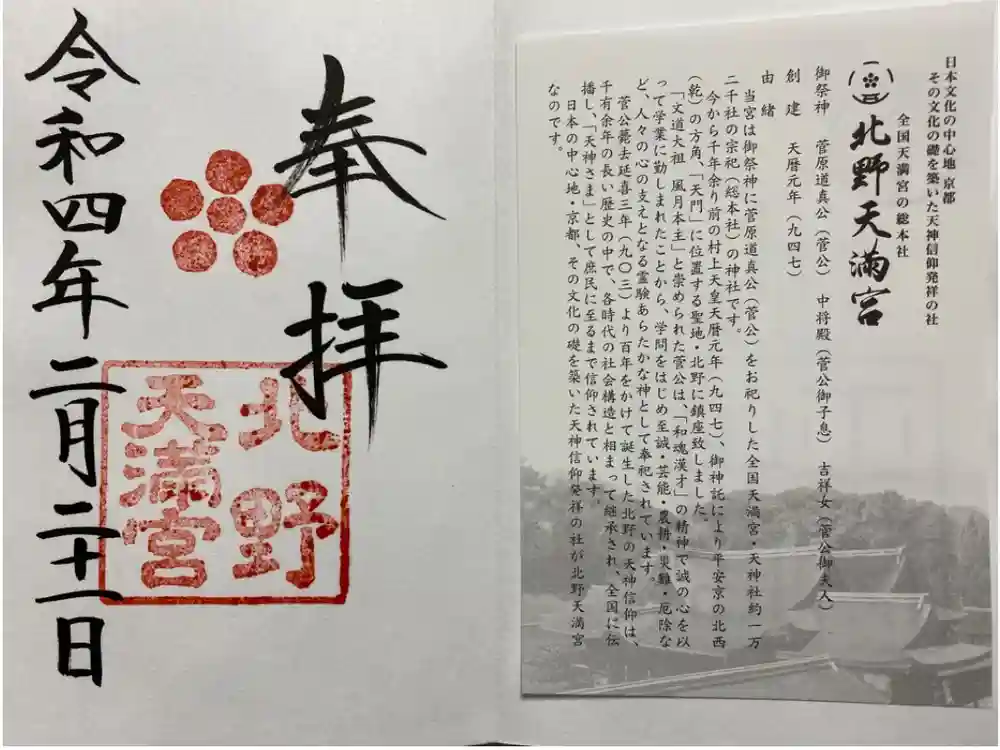 奉拝
北野
天満宮
令和四年二月二十一日
日本文化の中心地 京都
その文化の礎を築いた天神信仰発祥の社
全国天満宮の総本社
北野天満宮
御祭神 菅原道真公（菅公） 中将殿（菅公御子息） 吉祥女（菅公御夫人）
創建 天暦元年（九四七）
由緒
当宮は御祭神に菅原道真公（菅公）をお祀りした全国天満宮・天神社約一万
二千社の宗祀（総本社）の神社です。
今から千年余り前の村上天皇天暦元年（九四七）、御神託により平安京の北西
（乾）の方角、「天門」に位置する聖地・北野に鎮座致しました。
「文道大祖 風月本主」と崇められた菅公は、「和魂漢才」の精神で誠の心を以
って学業に勤しまれたことから、学問をはじめ至誠・芸能・農耕・災難・厄除な
ど、人々の心の支えとなる霊験あらたかな神として奉祀されています。
菅公薨去延喜三年（九〇三）より百年をかけて誕生した北野の天神信仰は、
千有余年の長い歴史の中で、各時代の社会構造と相まって継承され、全国に伝
播し、「天神さま」として庶民に至るまで信仰されています。
日本の中心地・京都、その文化の礎を築いた天神信仰発祥の社が北野天満宮
なのです。